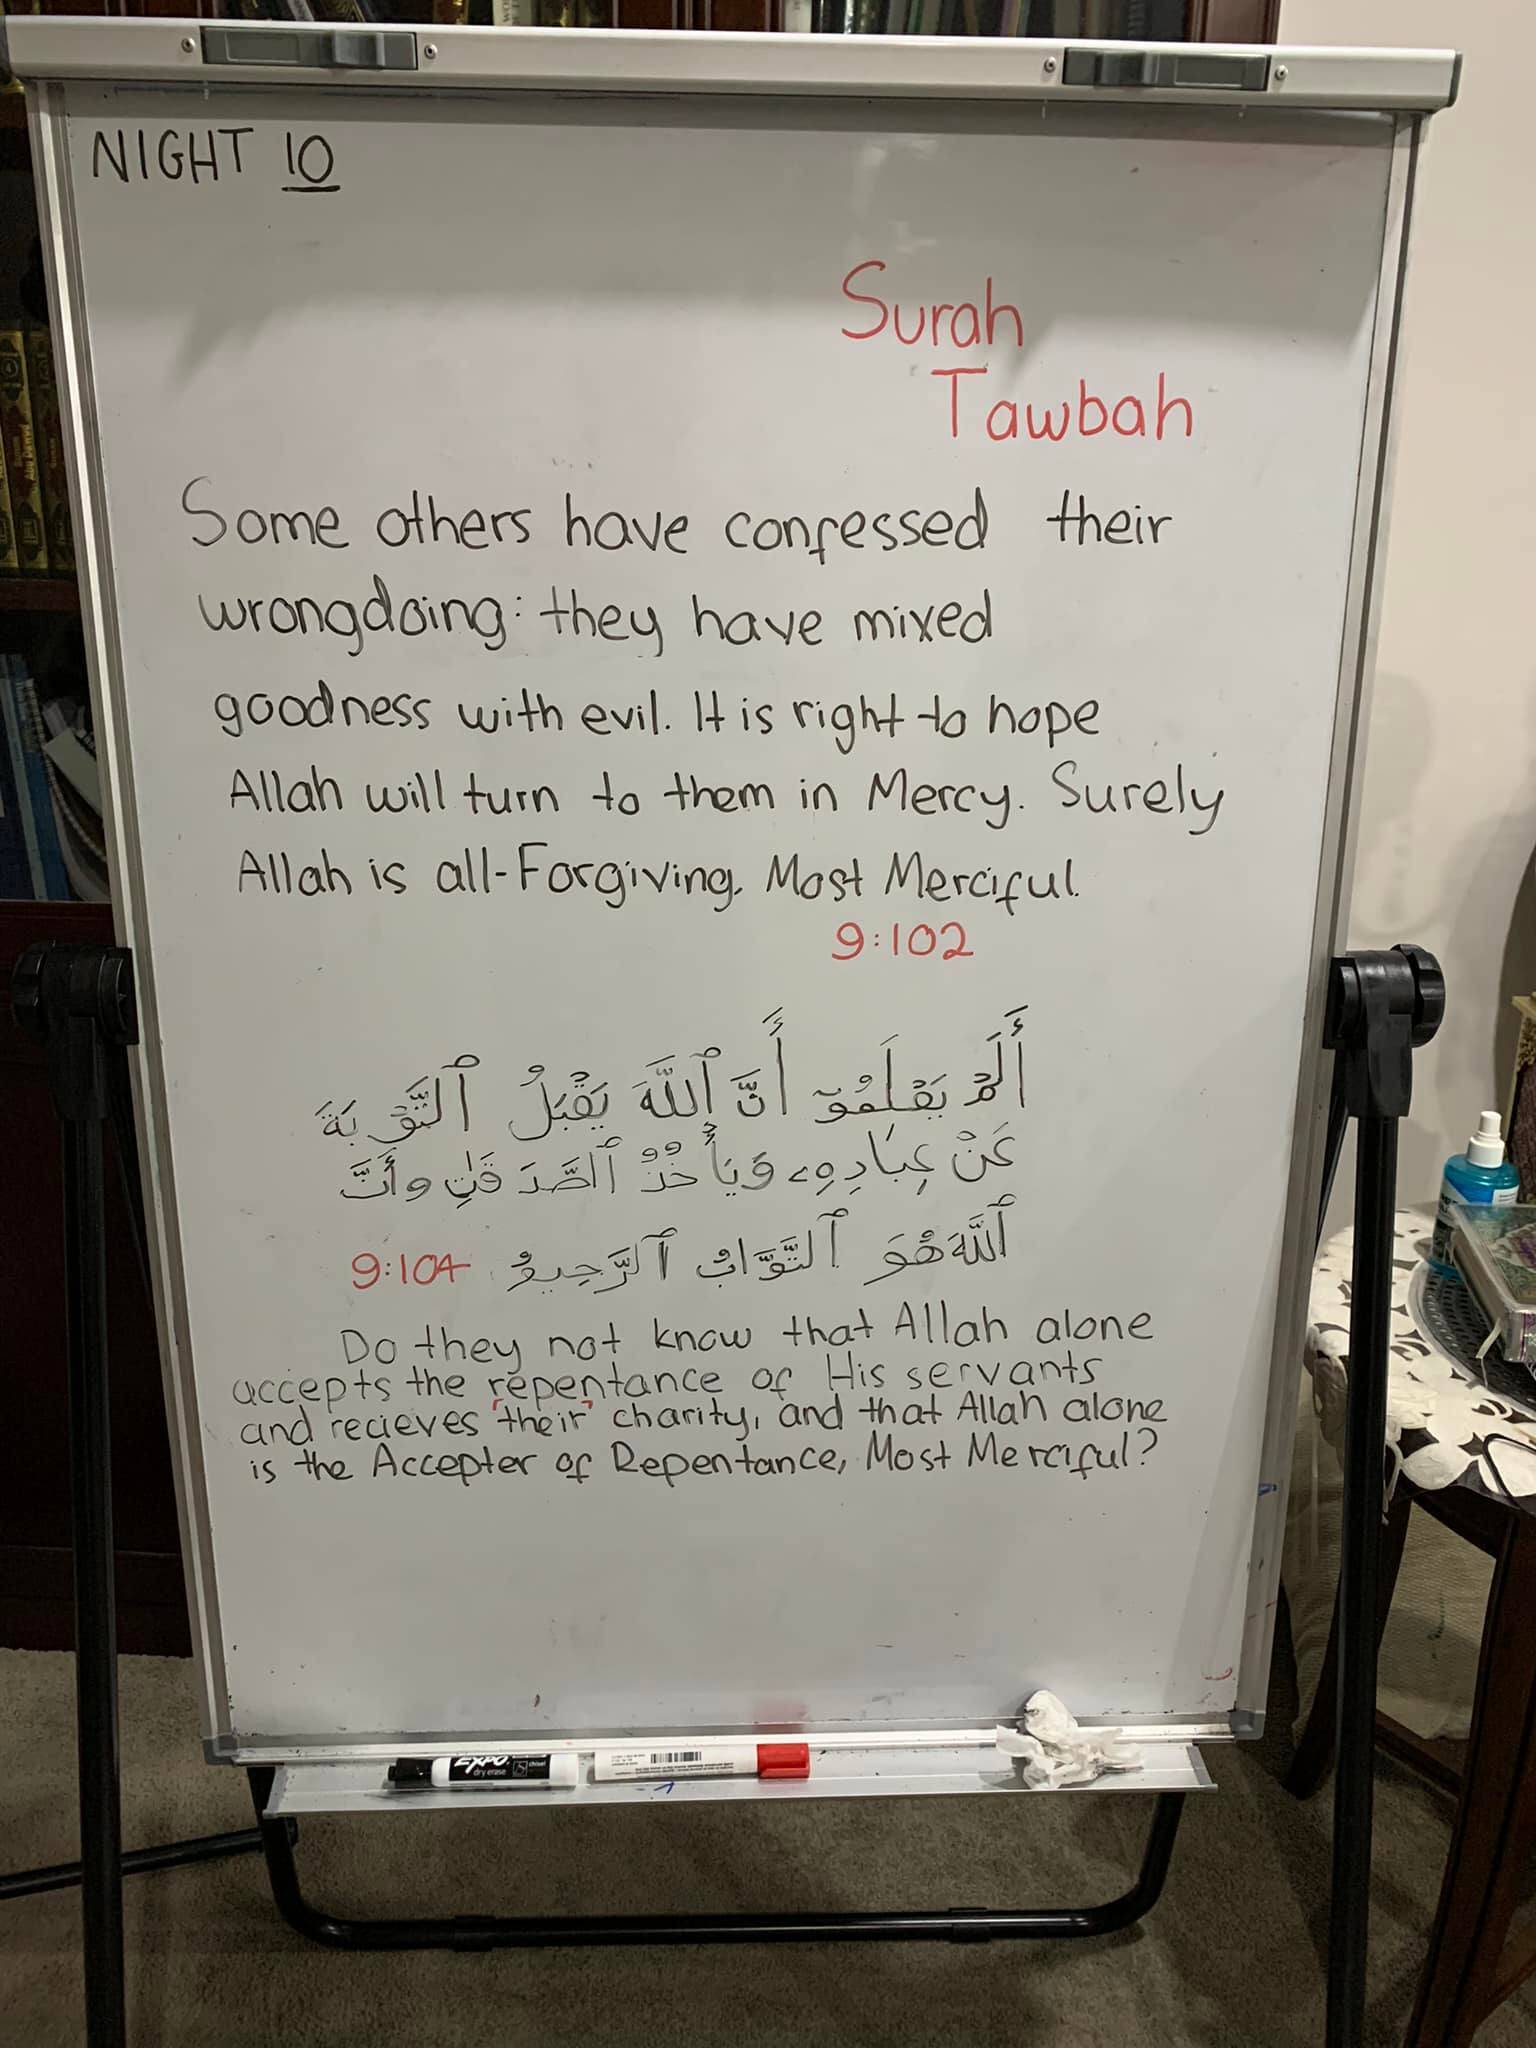 NIGHT 10
Surah
Tawbah
Some others have confessed their
wrongdoing: they have mixed
goodness with evil. It is right to hope
Allah will turn to them in Mercy. Surely
Allah is all-Forgiving, Most Merciful.
9:102
أَلَمۡ يَعۡلَمُوٓ أَنَّ ٱللَّهَ يَقۡبَلُ ٱلتَّوۡبَةَ
عَنۡ عِبَادِهِۦ وَيَأۡخُذُ ٱلصَّدَقَٰتِ وأَنَّ
ٱللَّهَ هُوَ ٱلتَّوَّابُ ٱلرَّحِيمُ 9:104
Do they not know that Allah alone
accepts the repentance of His servants
and recieves "their" charity, and that Allah alone
is the Accepter of Repentance, Most Merciful?
EXPO
dry erase
Abu Dawud